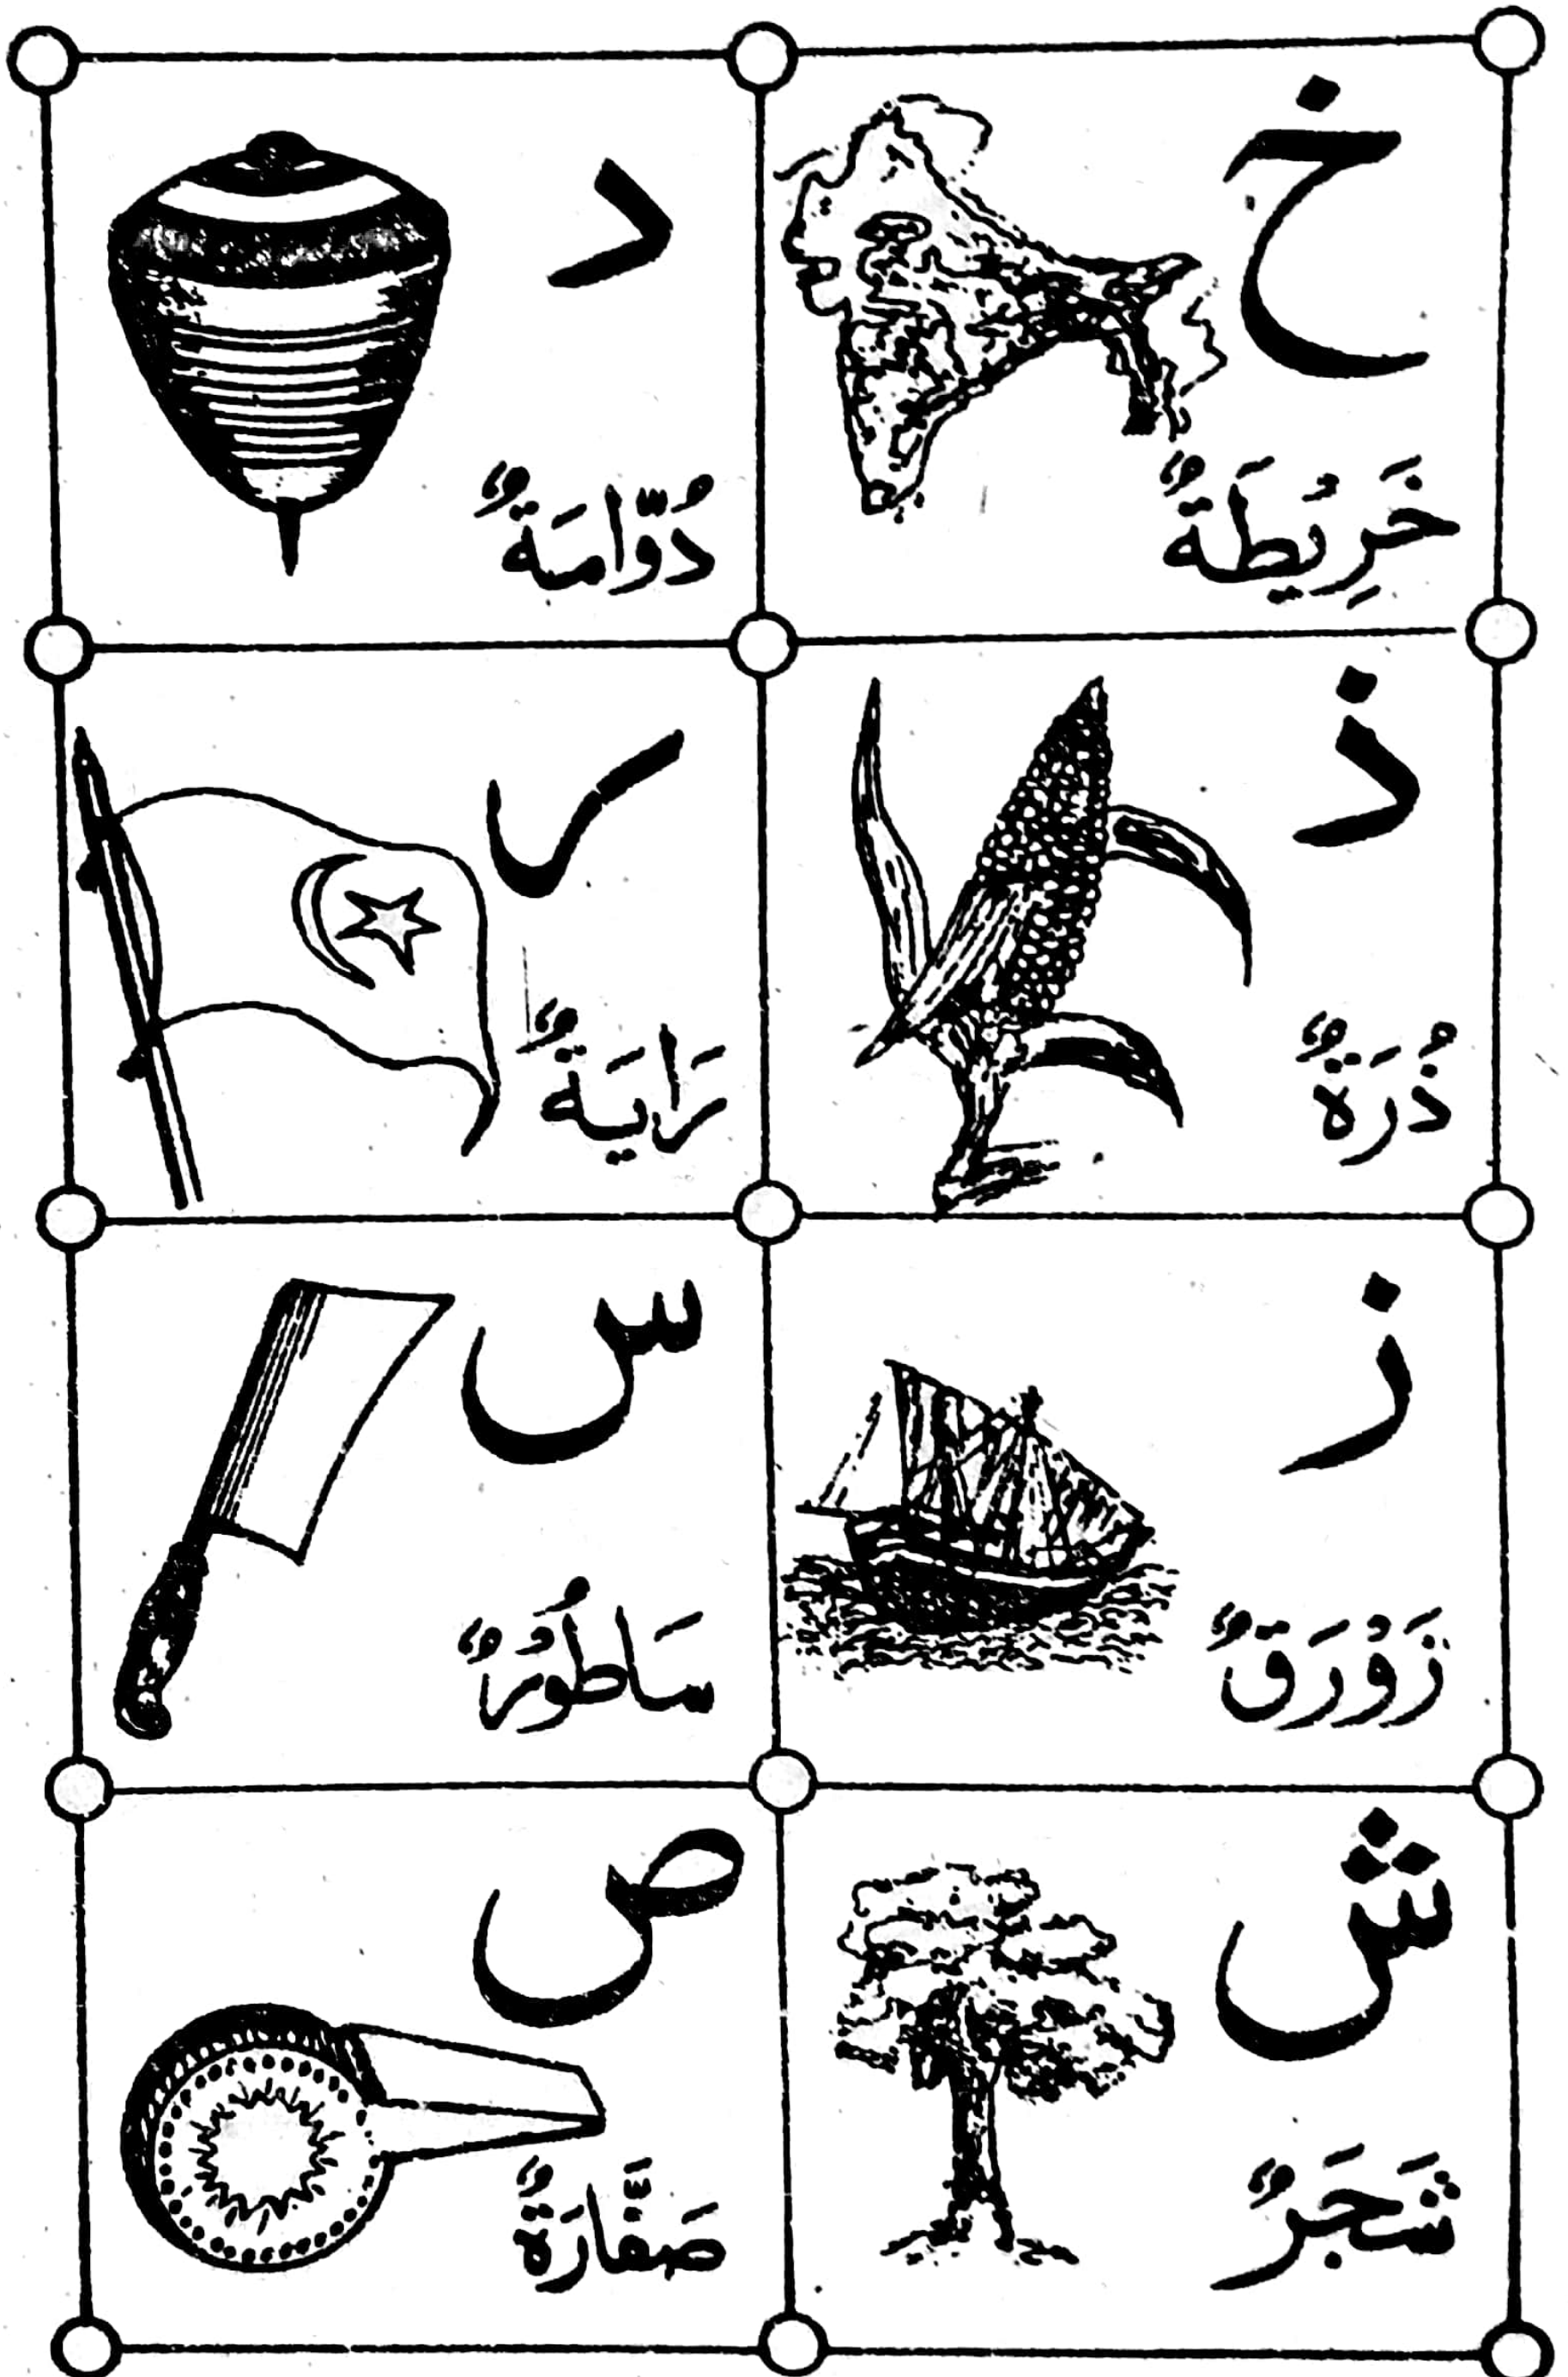 خ
خَرِيْطَةٌ
د
دُوَّامَةٌ
ذ
ذُرَةٌ
ر
رَايَةٌ
ز
زَوْرَقٌ
س
سَاطُوْرٌ
ش
شَجَرٌ
ص
صَفَّارَةٌ